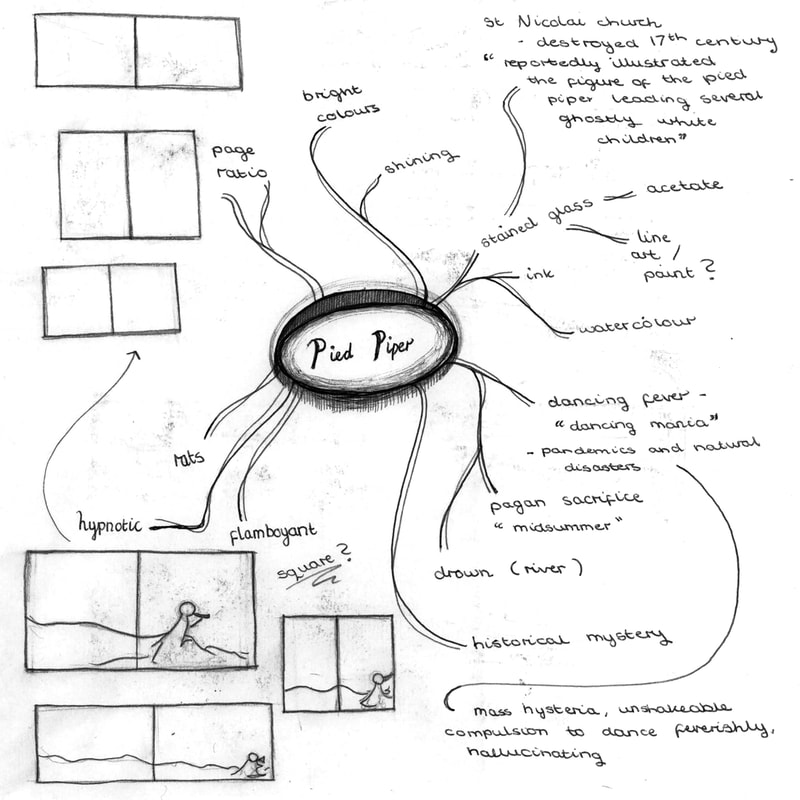 St Nicolai church
- destroyed 17th century
"reportedly illustrated
the figure of the pied
piper leading several
ghostly white
children"
bright
colours
shining
page
ratio
stained glass
acetate
line
art /
paint?
ink
watercolour
Pied Piper
dancing fever -
"dancing mania"
- pandemics and natural
disasters
rats
pagan sacrifice
"midsummer"
hypnotic
flamboyant
square?
drown (river)
historical mystery
mass hysteria, unshakeable
compulsion to dance feverishly,
hallucinating